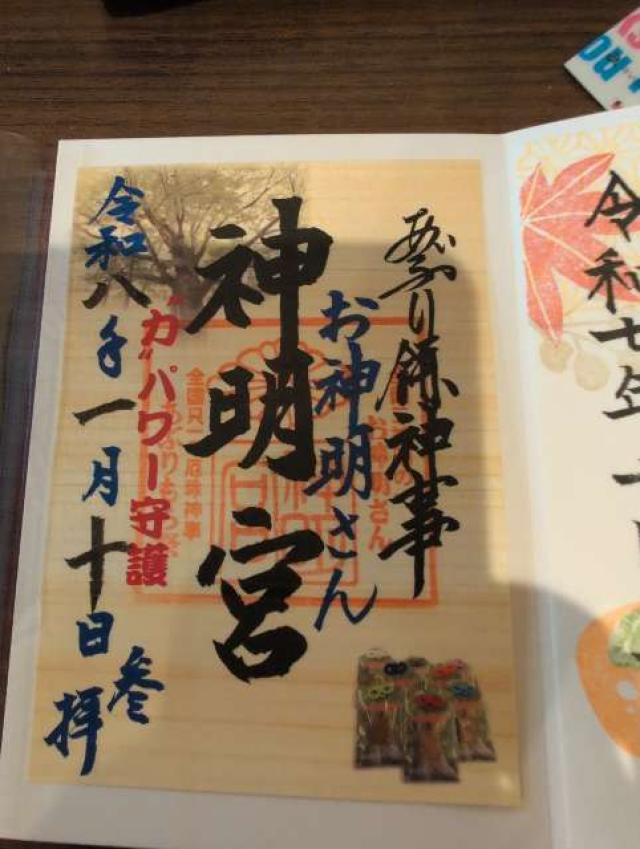 あぶり餅神事
お神明さん
神明宮
お神明さん
全国只一厄除神事
あぶりもち祭
"力"パワー守護
令和八年一月十日
参拝
令和七年十